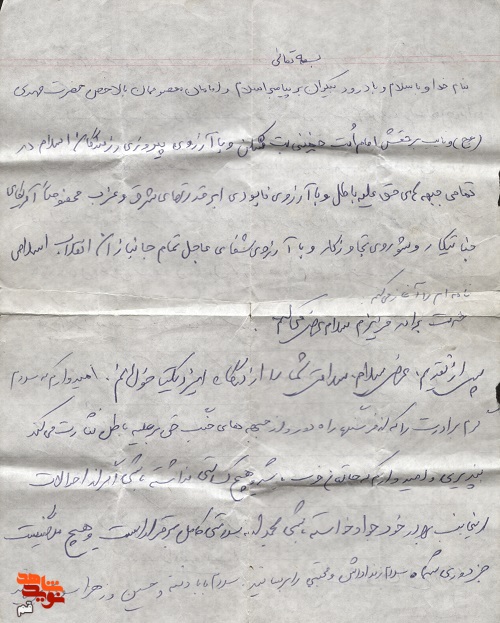 بسمه تعالی
بنام خدا و با سلام و با درود بیکران بر پیامبر اسلام و امامان معصومان بالاخص حضرت مهدی
(عج) و نایب برحقش امام امت خمینی بت شکن و با آرزوی پیروزی رزمندگان اسلام در
تمامی جبهه های حق علیه باطل و با آرزوی نابودی ابرقدرتهای شرق و غرب مخصوصاً آمریکای
جنایتکار و شوروی تجاوزکار و با آرزوی شفای عاجل تمام جانبازان انقلاب اسلامی
نامه ام را آغاز می کنم
خدمت برادر عزیزم سلام عرض می کنم.
پس از تقدیم عرض سلام، سلامتی شما را از درگاه ایزد یکتا خواهانم. امیدوارم که سلام
گرم برادرت را که از فرسنگ راه دور و از جبهه های حق بر علیه باطل نثارت می کند
بپذیری و امیدوارم که حالتان خوب باشد و هیچ کسالتی نداشته باشی اگر از احوالات
اینجانب برادر خود جواد خواسته باشی بحمدالله سلامتی کامل برقرار است و هیچ ملالی نیست
جز دوری شما سلام به داداش و مجتبی را برسانید. سلام و حسین و زهرا
نوید شاهد
قم